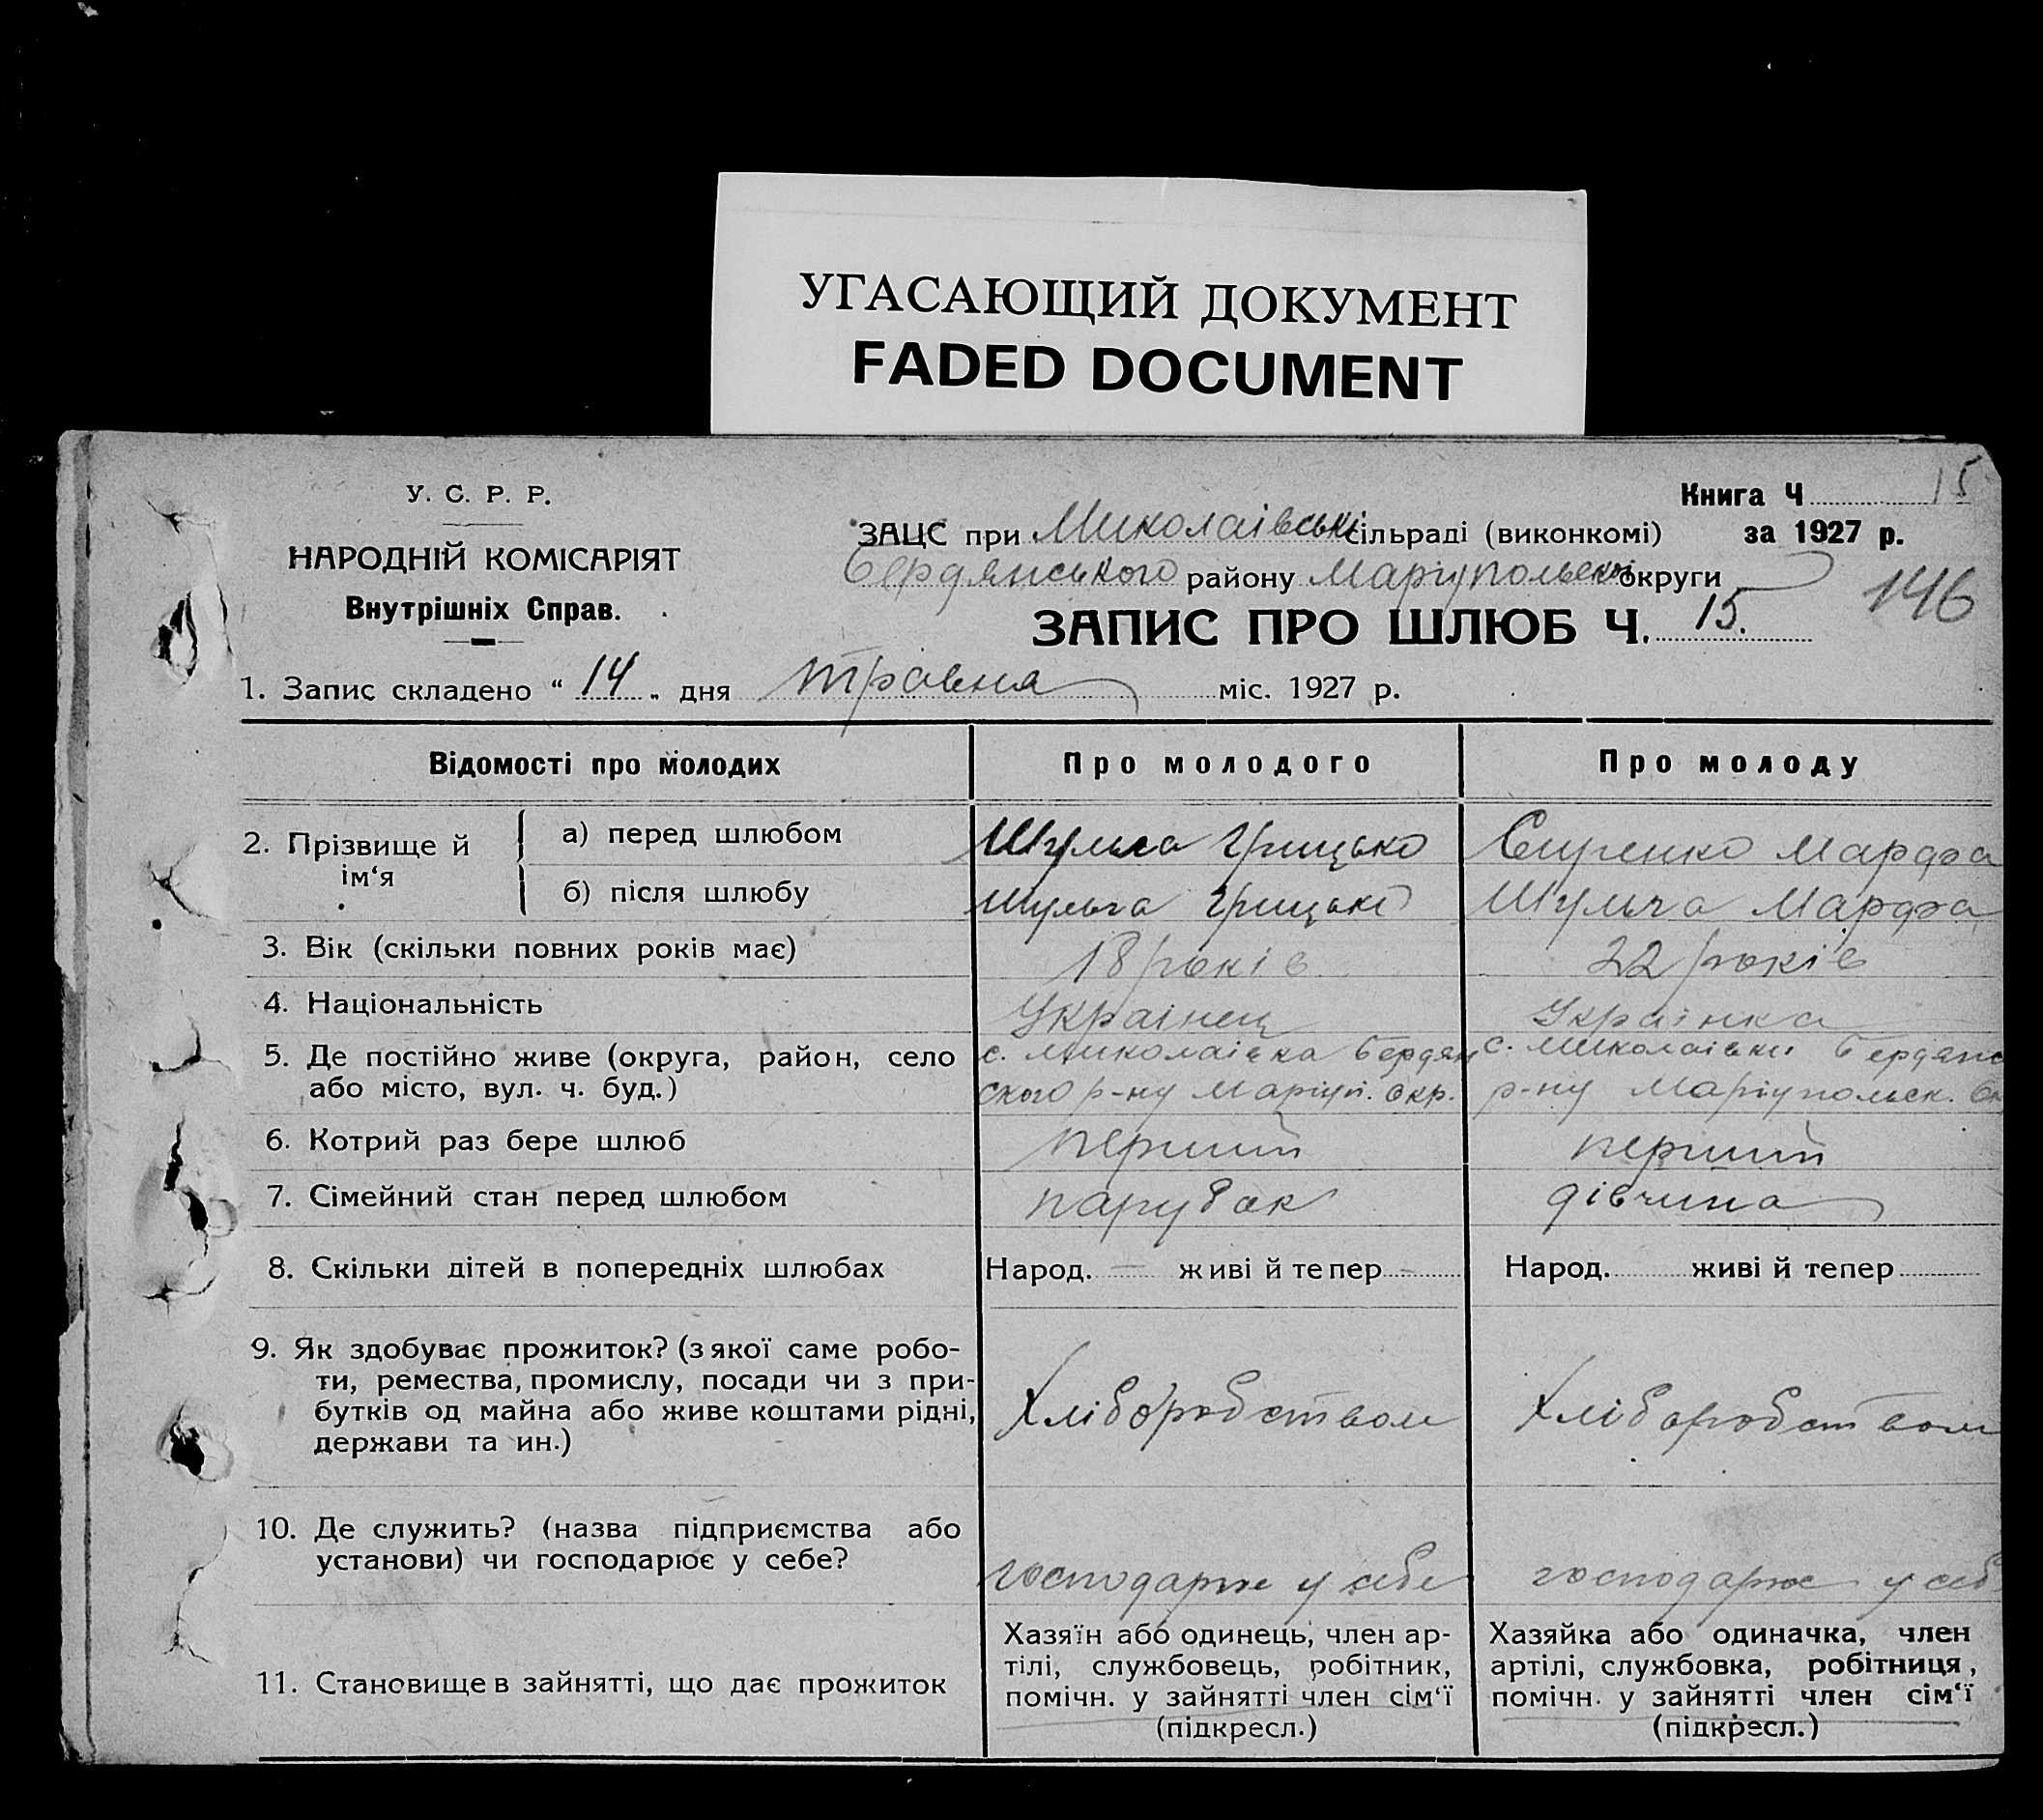 УГАСАЮЩИЙ ДОКУМЕНТ
FADED DOCUMENT
У. С. Р. Р.
НАРОДНІЙ КОМІСАРІЯТ
Внутрішніх Справ.
Книга Ч 15
за 1927 р.
ЗАЦС при Миколаівській сільраді (виконкомі)
Бердянського району Маріупольскоі округи
146
ЗАПИС ПРО ШЛЮБ Ч. 15.
1. Запис складено “ 14 „ дня травня міс. 1927 р.
Відомості про молодих Про молодого Про молоду
2. Прізвище й ім‘я
а) перед шлюбом Шульга Грицько Марфа
б) після шлюбу Шульга Грицько Шульга Марфа
3. Вік (скільки повних років має) 18 років 22 років
4. Національність Украінец Украінка
5. Де постійно живе (округа, район, село с. Миколаівка Бердян с. Миколаівки Бердянс
або місто, вул. ч. буд.) ского р-ну Маріуп. окр. р-ну Маріупольск. Ок
6. Котрий раз бере шлюб перший перший
7. Сімейний стан перед шлюбом парубок дівчина
8. Скільки дітей в попередніх шлюбах Народ. — живі й тепер — Народ. живі й тепер
9. Як здобуває прожиток? (з якої саме робо-
ти, ремества, промислу, посади чи з при-
бутків од майна або живе коштами рідні,
держави та ин.)
Хліборобством Хліборобством
10. Де служить? (назва підприємства або
установи) чи господарює у себе?
господарює у себе господарює у себ
11. Становище в зайнятті, що дає прожиток
Хазяїн або одинець, член ар-
тілі, службовець, робітник,
помічн. у зайнятті член сім‘ї
(підкресл.)
Хазяйка або одиначка, член
артілі, службовка, робітниця,
помічн. у зайнятті член сім‘ї
(підкресл.)